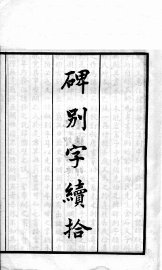 碑別字續拾